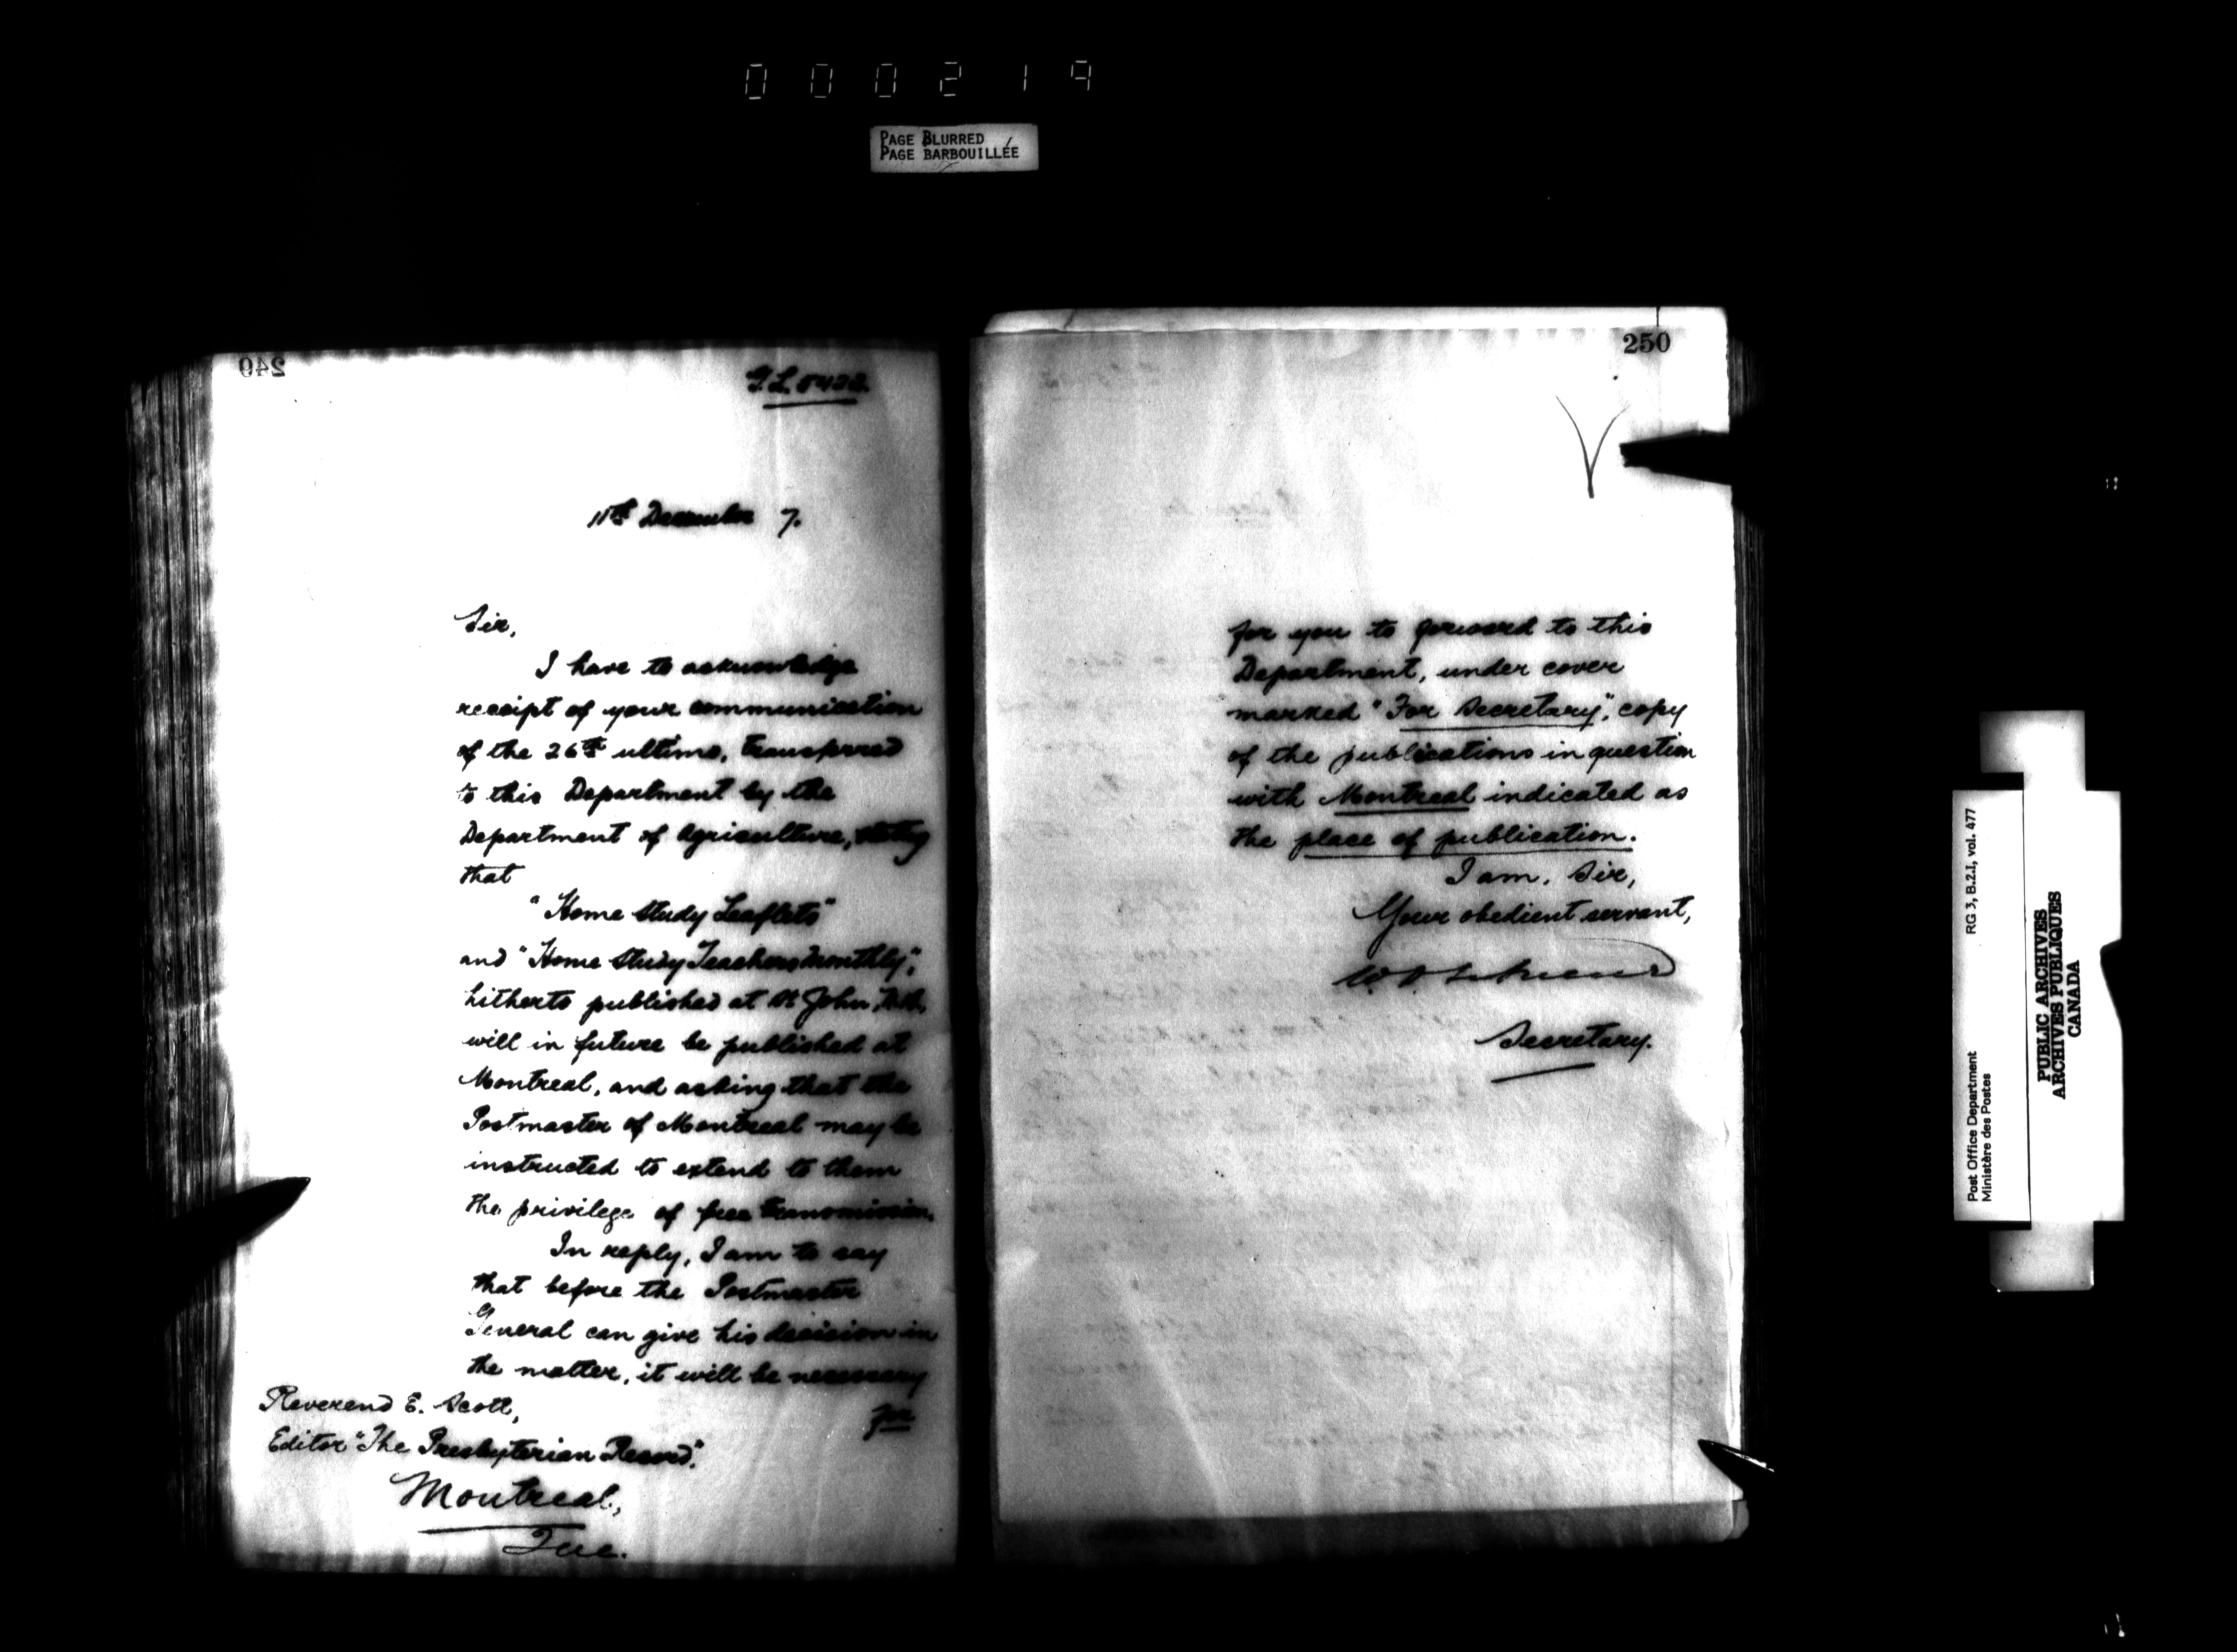 000219
PAGE BLURRED
PAGE BARBOUILLÉE
249
11th December 7.
Sir,
I have to acknowledge
receipt of your communication
of the 26th ultimo, transferred
to this Department by the
Department of Agriculture, stating
that
"Home Study Leaflets"
and "Home Study Teachers Monthly",
hitherto published at St John, N.B.
will in future be published at
Montreal, and asking that the
Postmaster of Montreal may be
instructed to extend to them
the privilege of free transmission.
In reply, I am to say
that before the Postmaster
General can give his decision in
the matter, it will be necessary
for
Reverend E. Scott,
Editor "The Presbyterian Record".
Montreal,
Que.
250
for you to forward to this
Department, under cover
marked "For Secretary", copy
of the publications in question
with Montreal indicated as
the place of publication.
I am, Sir,
Your obedient servant,
Secretary.
Post Office Department
Ministère des Postes
RG 3, B.2.I, vol. 477
PUBLIC ARCHIVES
ARCHIVES PUBLIQUES
CANADA